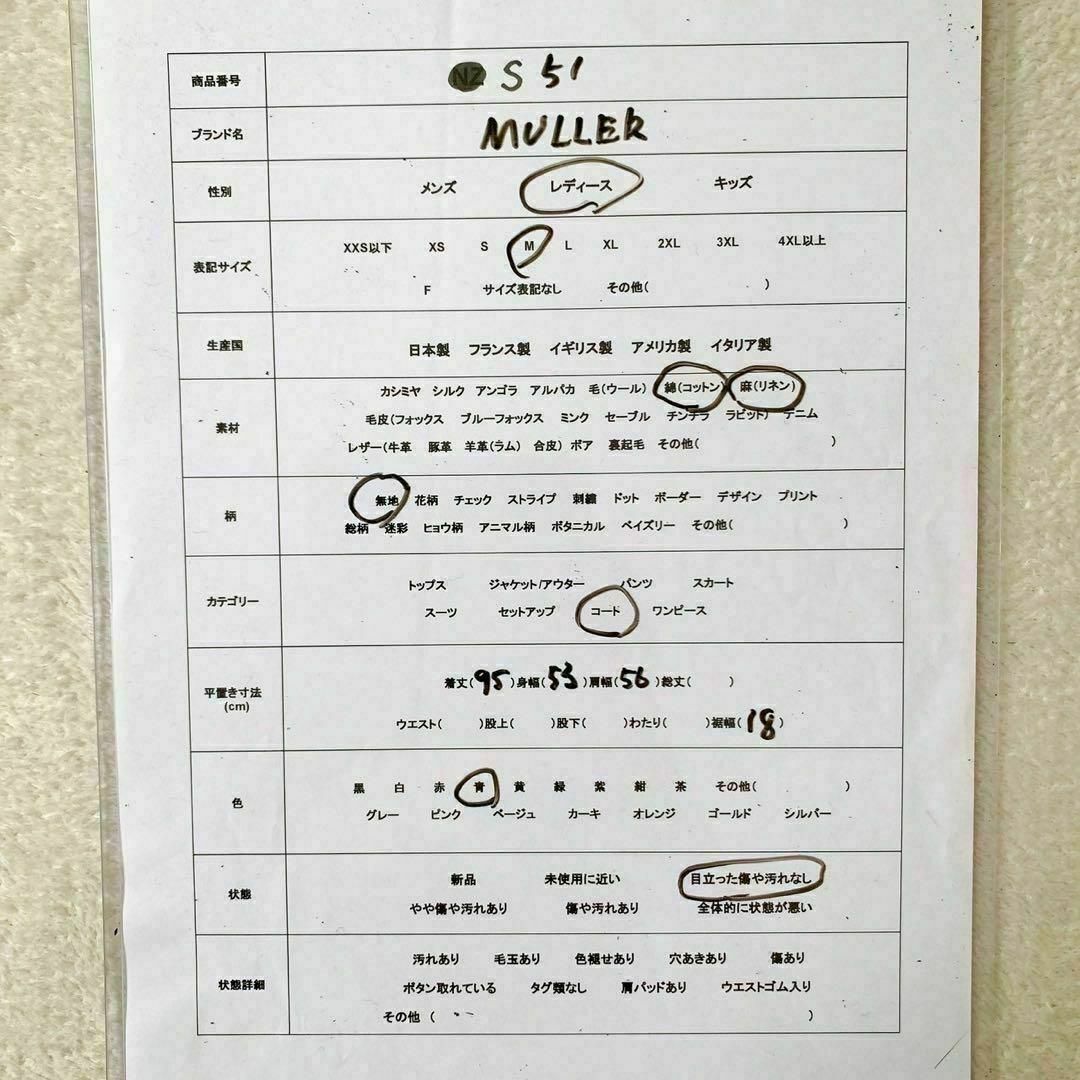 商品番号 NZ S 51
ブランド名 MULLER
性別 メンズ レディース キッズ
表記サイズ XXS以下 XS S M L XL 2XL 3XL 4XL以上
F サイズ表記なし その他( )
生産国 日本製 フランス製 イギリス製 アメリカ製 イタリア製
素材 カシミヤ シルク アンゴラ アルパカ 毛(ウール) 綿(コットン) 麻(リネン)
毛皮(フォックス ブルーフォックス ミンク セーブル チンチラ ラビット) デニム
レザー(牛革 豚革 羊革(ラム) 合皮) ボア 裏起毛 その他( )
柄 無地 花柄 チェック ストライプ 刺繍 ドット ボーダー デザイン プリント
総柄 迷彩 ヒョウ柄 アニマル柄 ボタニカル ペイズリー その他( )
カテゴリー トップス ジャケット/アウター パンツ スカート
スーツ セットアップ コード ワンピース
平置き寸法 (cm) 着丈(95)身幅(53)肩幅(56)総丈( )
ウエスト( )股上( )股下( )わたり( )裾幅(18)
色 黒 白 赤 青 黄 緑 紫 紺 茶 その他( )
グレー ピンク ベージュ カーキ オレンジ ゴールド シルバー
状態 新品 未使用に近い 目立った傷や汚れなし
やや傷や汚れあり 傷や汚れあり 全体的に状態が悪い
状態詳細 汚れあり 毛玉あり 色褪せあり 穴あきあり 傷あり
ボタン取れている タグ類なし 肩パッドあり ウエストゴム入り
その他 ( )